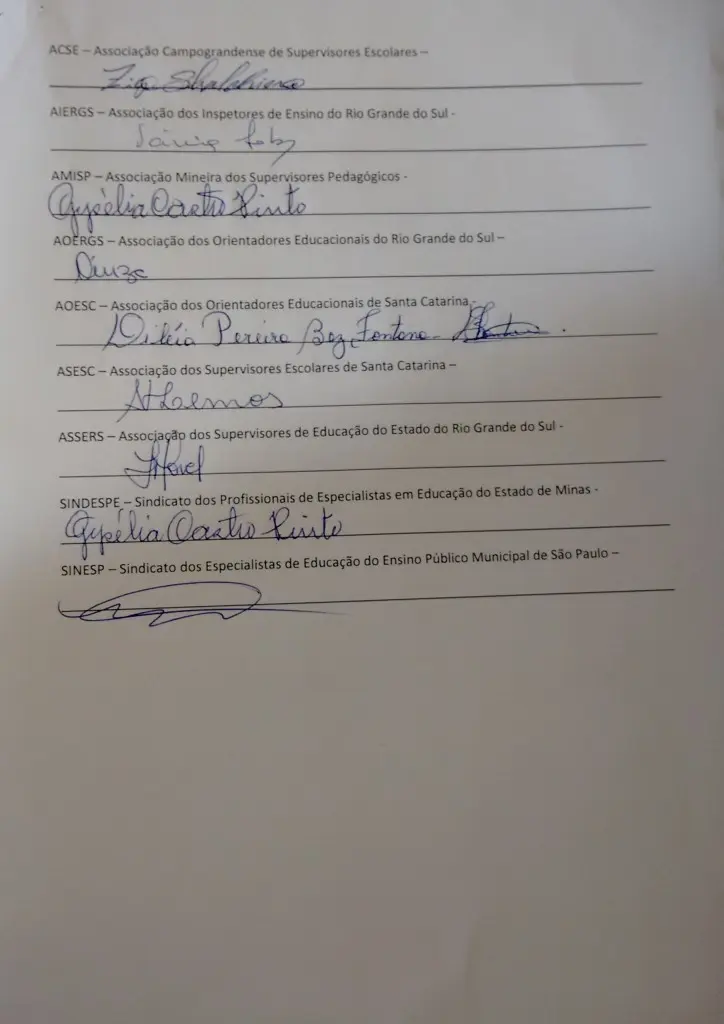 ACSE – Associação Campograndense de Supervisores Escolares –
AIERGS – Associação dos Inspetores de Ensino do Rio Grande do Sul -
AMISP – Associação Mineira dos Supervisores Pedagógicos -
Gypélia Castro Pinto
AOERGS – Associação dos Orientadores Educacionais do Rio Grande do Sul –
AOESC – Associação dos Orientadores Educacionais de Santa Catarina -
Pereira Boz Fontana
ASESC – Associação dos Supervisores Escolares de Santa Catarina –
Lemos
ASSERS – Associação dos Supervisores de Educação do Estado do Rio Grande do Sul -
SINDESPE – Sindicato dos Profissionais de Especialistas em Educação do Estado de Minas -
Gypélia Castro Pinto
SINESP – Sindicato dos Especialistas de Educação do Ensino Público Municipal de São Paulo –